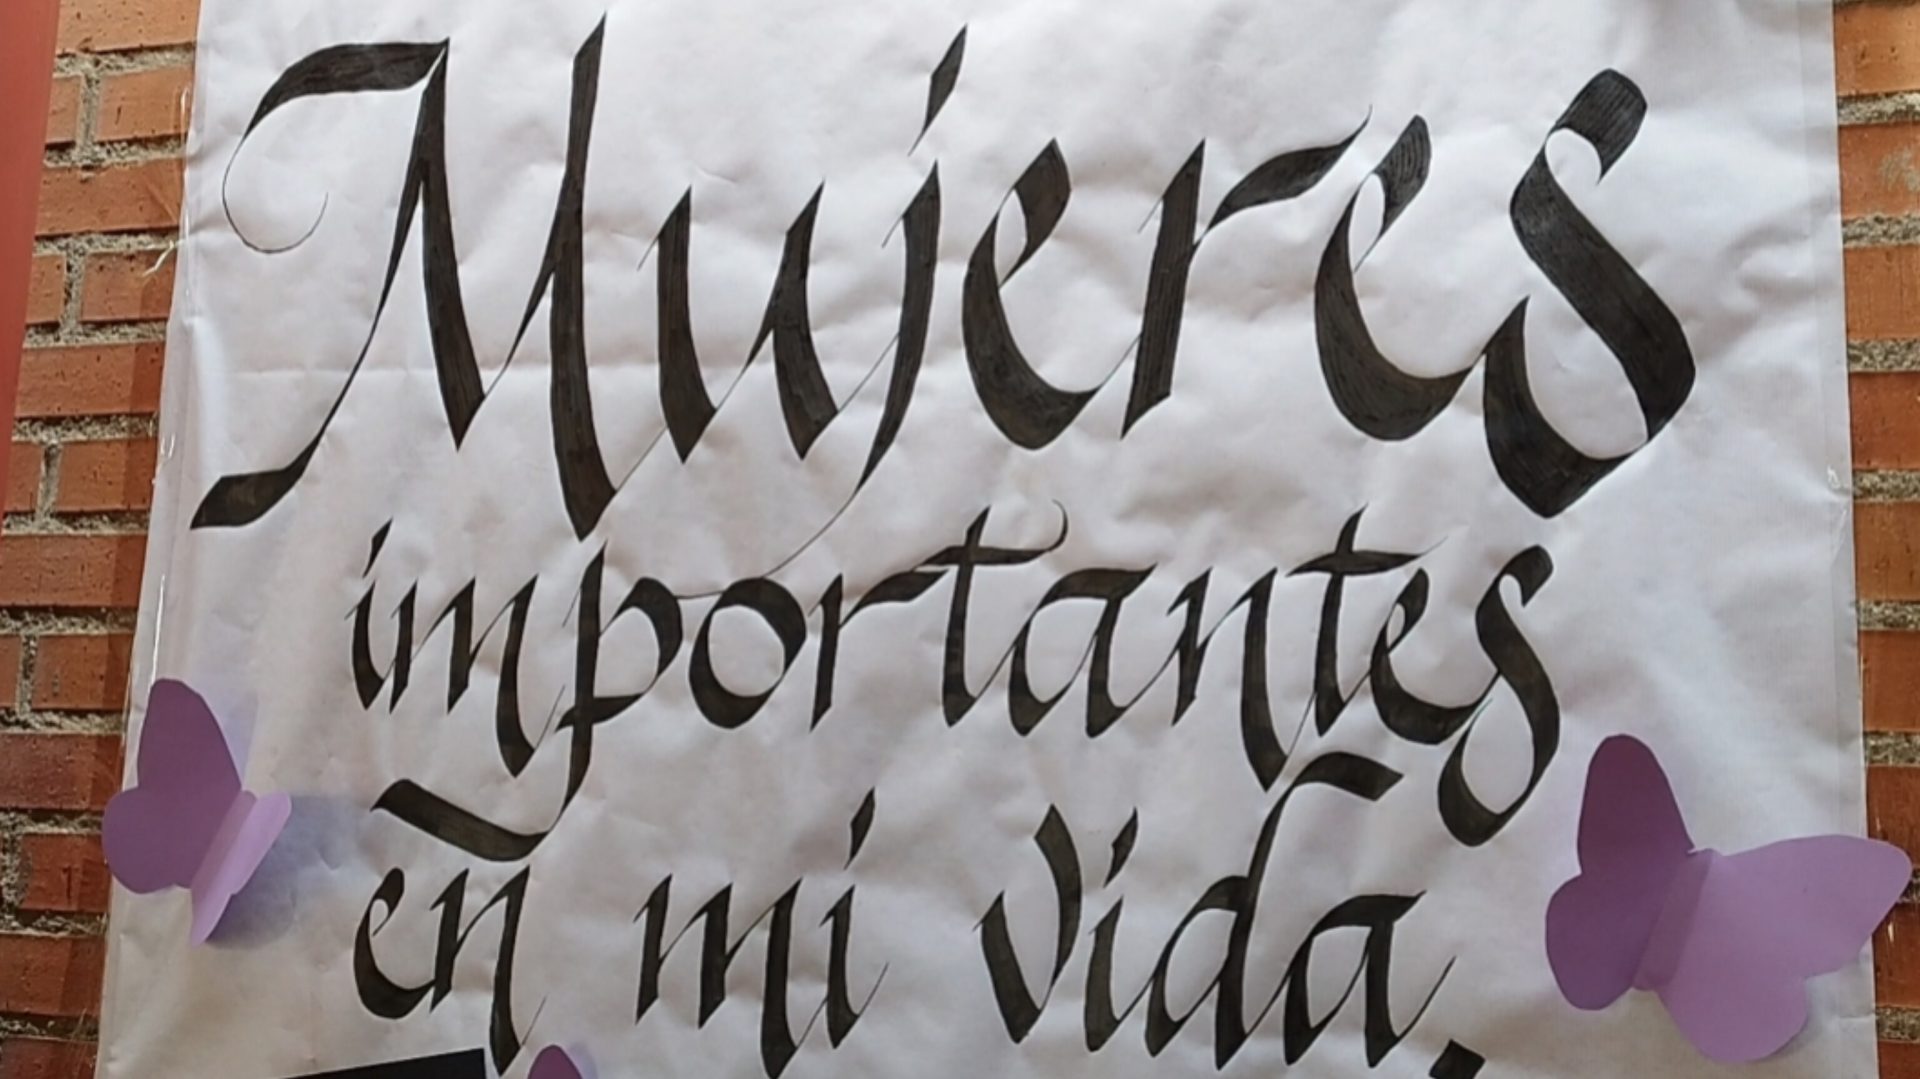 Mujeres
importantes
en mi vida.